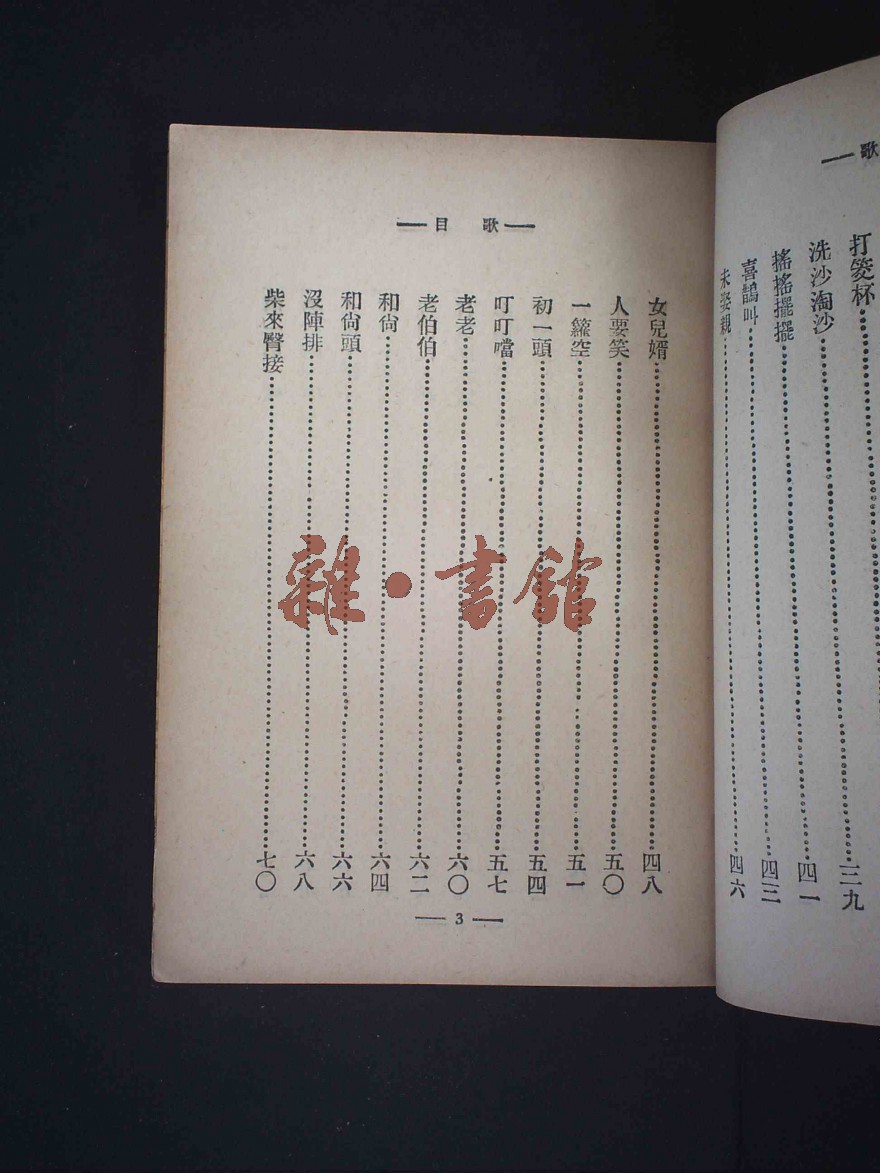 歌
打筊杯……三九
洗沙淘沙……四一
搖搖擺擺……四三
喜鵲叫……四三
未娶親……四六
歌目
女兒婿……四八
人要笑……五〇
一籮空……五一
初一頭……五四
叮叮噹……五七
老老……六〇
老伯伯……六二
和尙……六四
和尙頭……六六
沒陣排……六八
柴來臀接……七〇
3
雜·書館